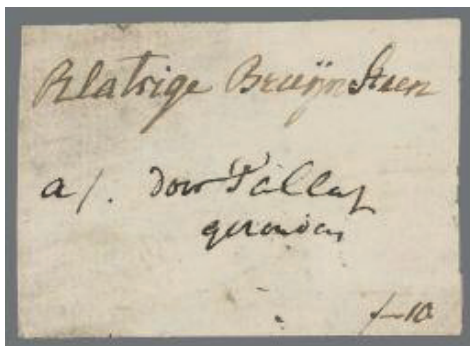 Blatrige Bruÿnsteen
a/. door Pallas
gevonden
f—10